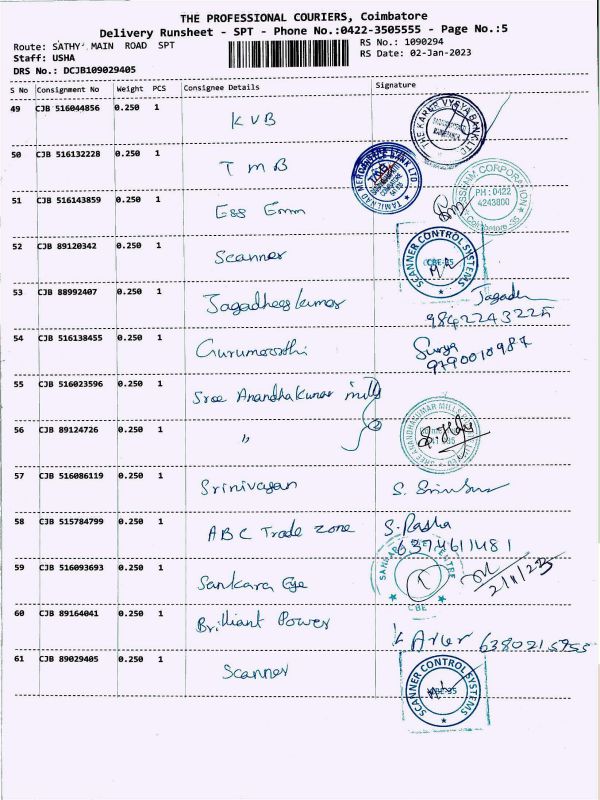 THE PROFESSIONAL COURIERS, Coimbatore
Delivery Runsheet - SPT - Phone No.:0422-3505555 - Page No.:5
Route: SATHY MAIN ROAD SPT
RS No.: 1090294
Staff: USHA
RS Date: 02-Jan-2023
DRS No.: DCJB109029405
S No Consignment No Weight PCS Consignee Details Signature
49 CJB 516044856 0.250 1 KVB
THE KARUR VYSYA BANK LTD
50 CJB 516132228 0.250 1 TMB
TAMILNAD MERCANTILE BANK LTD.
51 CJB 516143859 0.250 1 Ess Emm
CORPORATION
PH : 0422
4243800
Coimbatore-35
52 CJB 89120342 0.250 1 Scanner
SCANNER CONTROL SYSTEMS
CBE-35
53 CJB 88992407 0.250 1 Jagadheeskumar Jagade
9842243225
54 CJB 516138455 0.250 1 Gurumoorthi Surya
9790010987
55 CJB 516023596 0.250 1 Sree Anandhakumar mills
56 CJB 89124726 0.250 1 "
SREE ANANDHAKUMAR MILLS
57 CJB 516086119 0.250 1 Srinivasan S. Srinivas
58 CJB 515784799 0.250 1 ABC Trade Zone S. Rasha
6374611481
59 CJB 516093693 0.250 1 Sankara Eye
CBE
2/1/23
60 CJB 89164041 0.250 1 Brilliant Power
61 CJB 89029405 0.250 1 Scanner
SCANNER CONTROL SYSTEMS